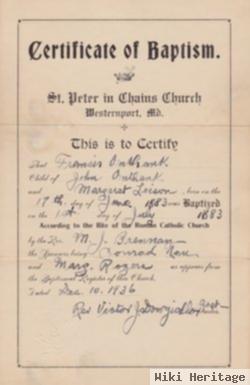 Certificate of Baptism.
St. Peter in Chains Church
Westernport, Md.
This is to Certify
That Francis Onthank
Child of John Onthank
and Margaret born on the
17th day of June 1883 was Baptized
on the 1st day of July 1883
According to the Rite of the Roman Catholic Church
by the Rev. M. J. Brennan
the Sponsors being Conrad
and Marg. Rogers as appears from
the Baptismal Register of this Church.
Dated Dec. 10, 1936
Rev Victor J.
Wiki Heritage